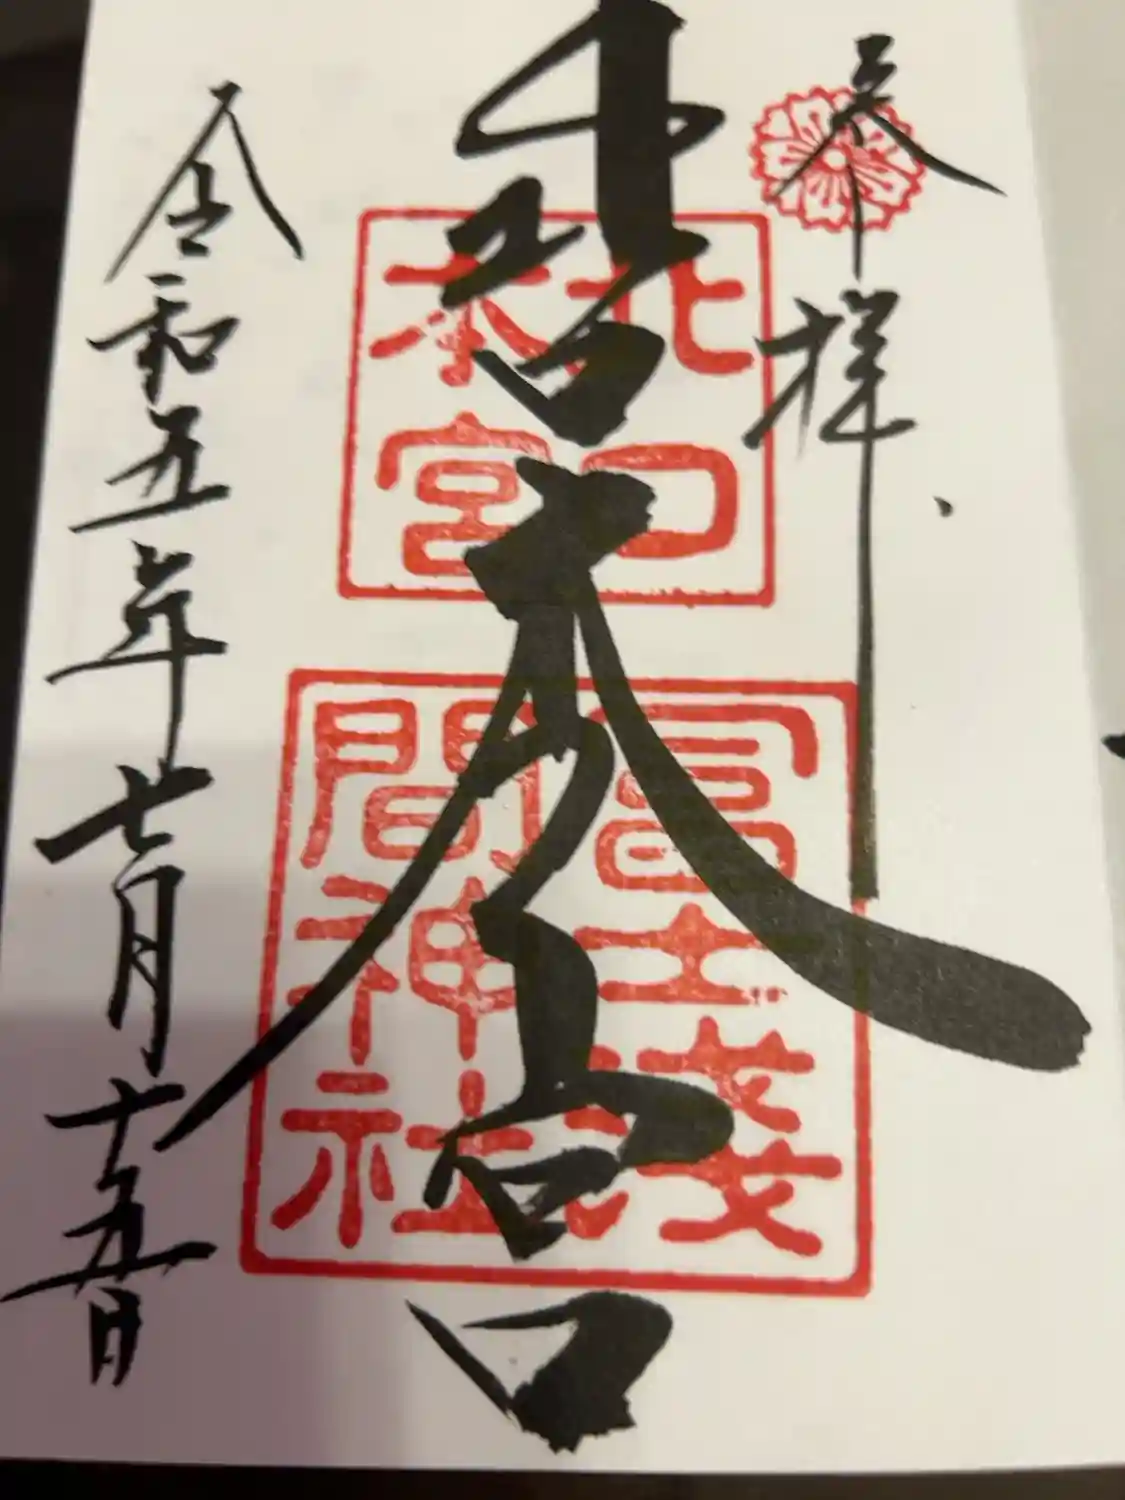 奉拝
北口本宮
北口
本宮
冨士淺
間神社
令和五年七月十五日